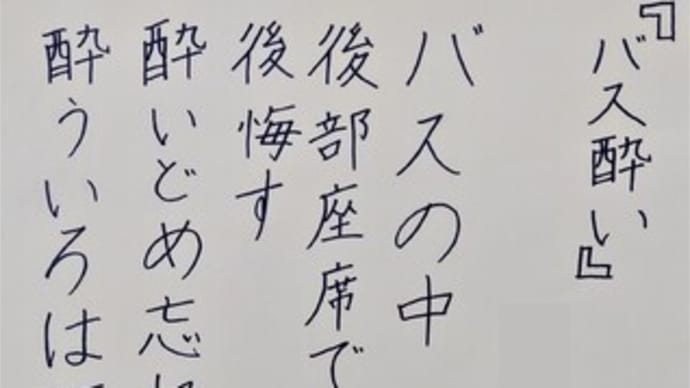 『バス酔い』
バスの中
後部座席で
後悔す
酔いどめ忘
酔ういろは